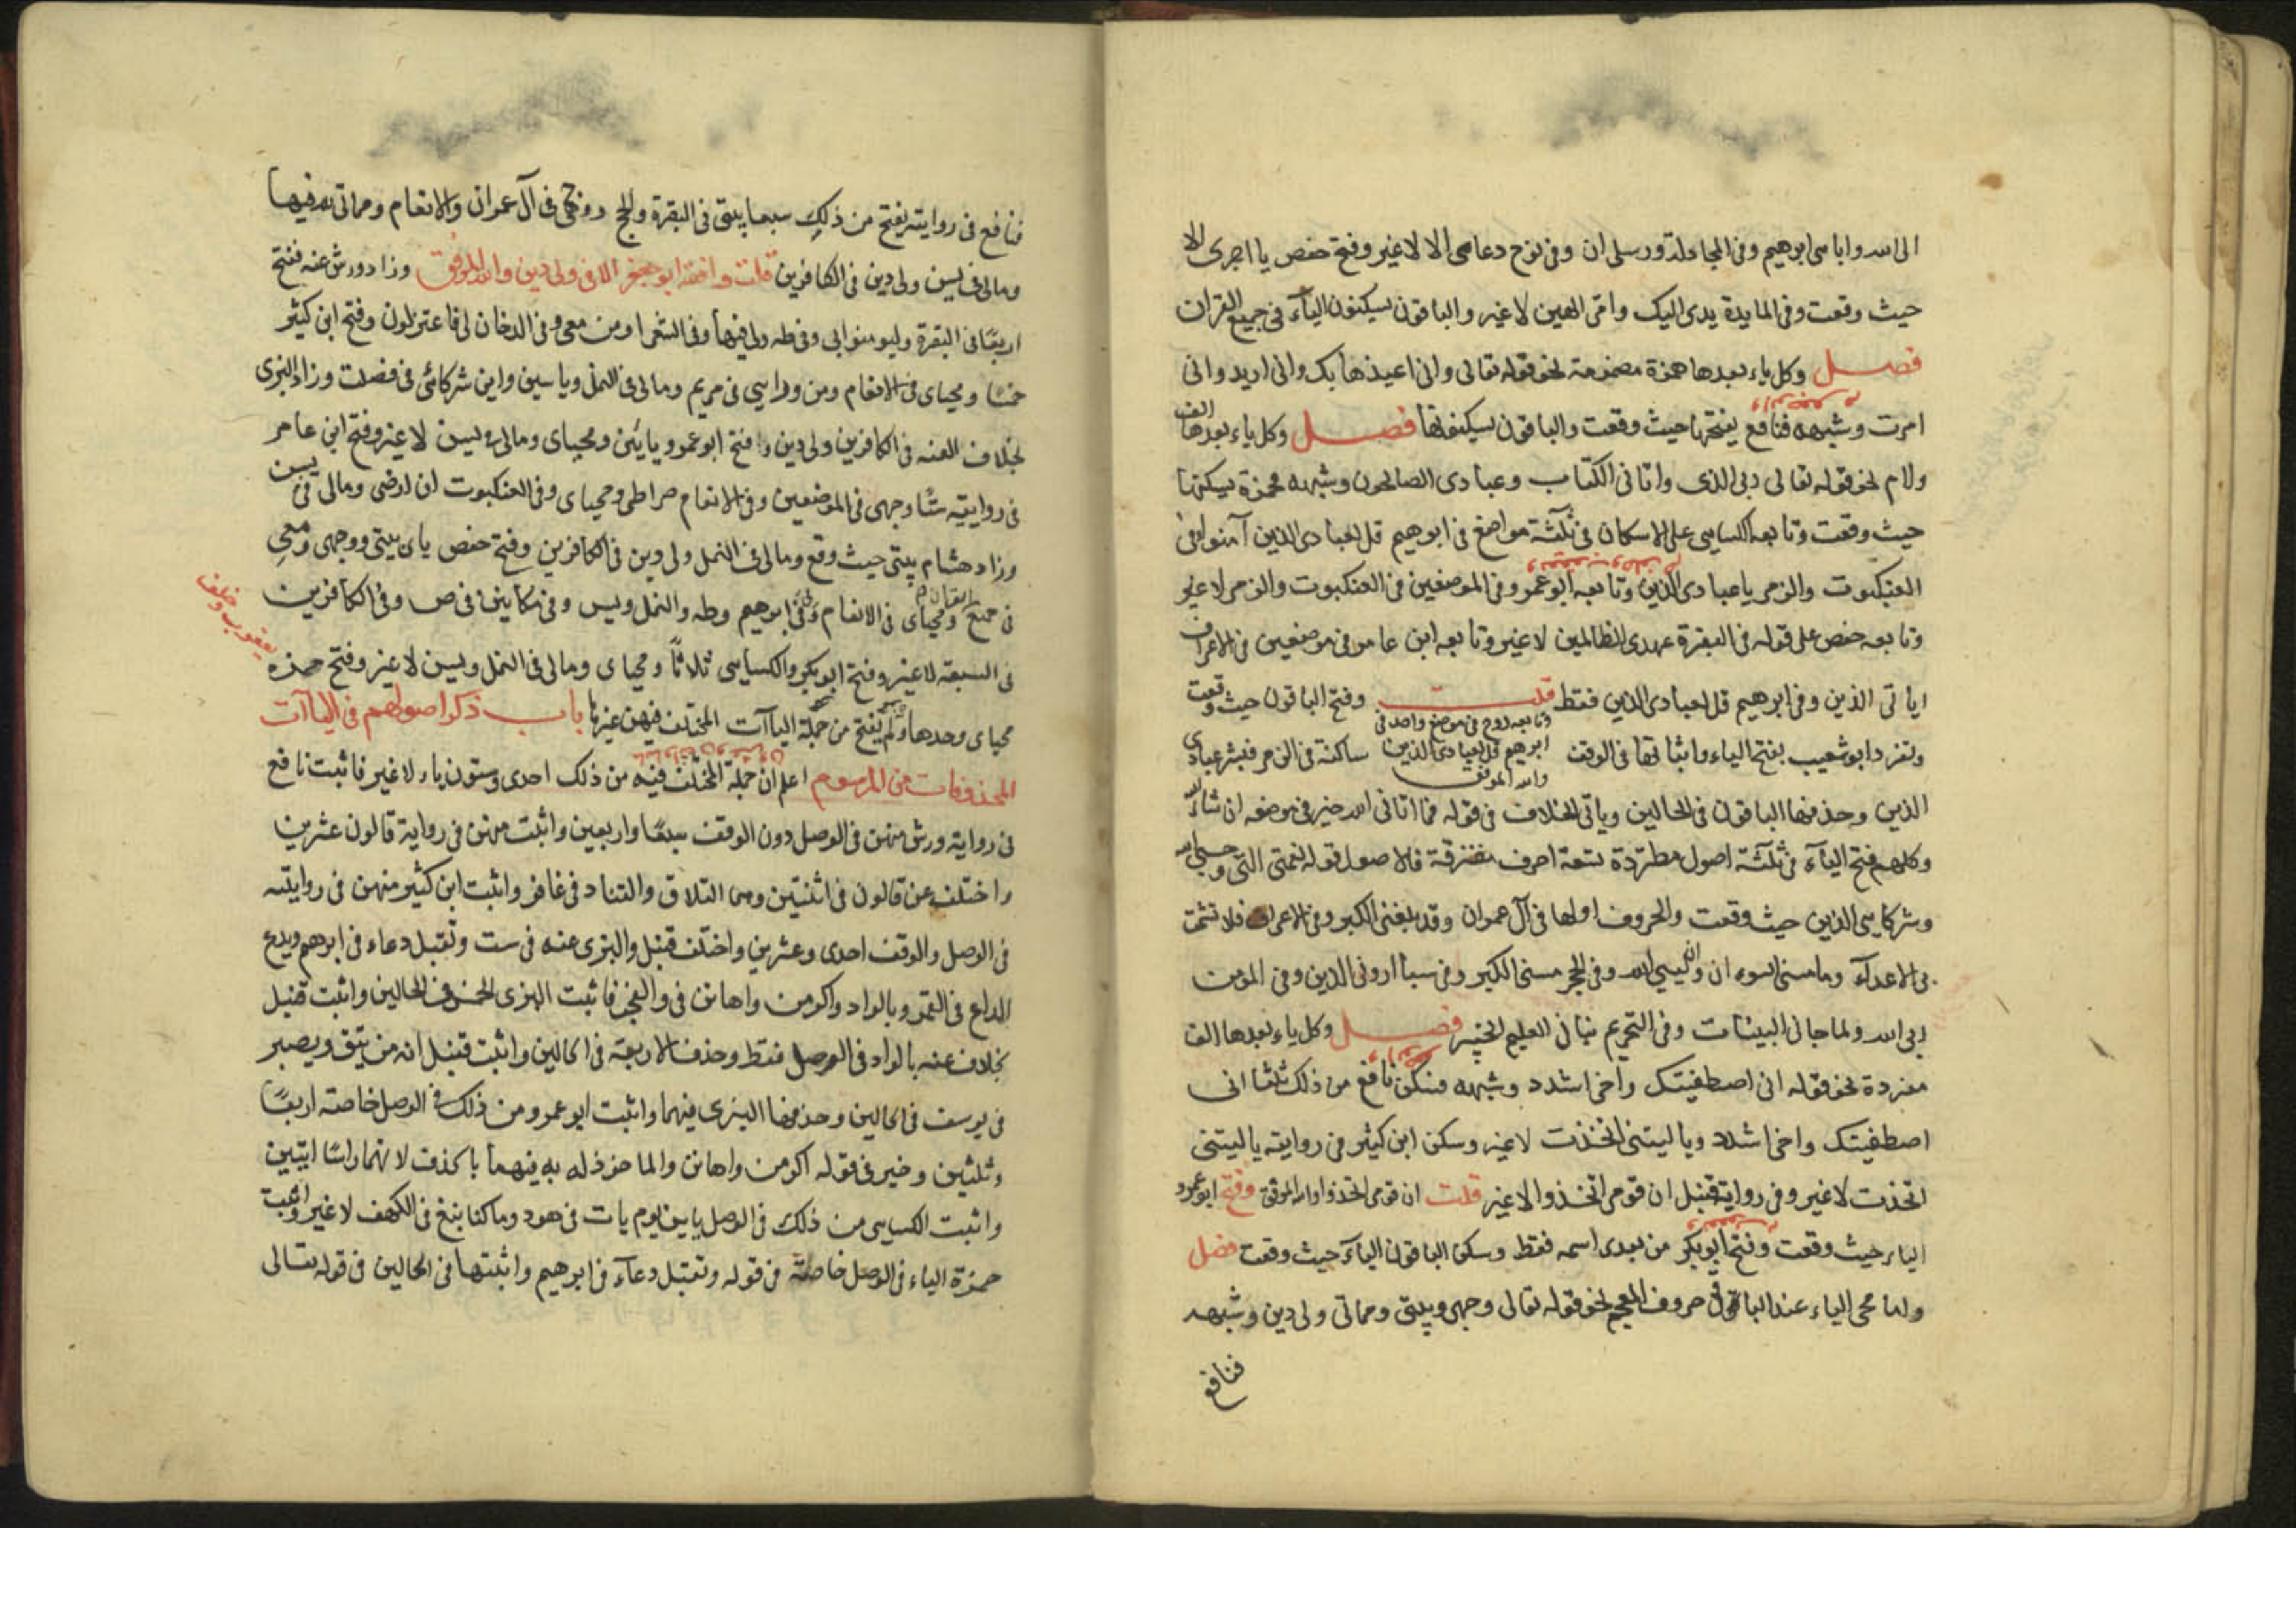 الى الله واباءى ابرهيم وفى المجادلة ورسلى ان وفى نوح دعاءى الا لا غير وفتح حفص يا اجرى الا
حيث وقعت وفى المايدة يدى اليك وامى الهين لا غير والباقون يسكنون الياء فى جميع القران
فصل وكل ياء بعدها همزة مضمومة نحو قوله تعالى وانى اعيذها بك وانى اريد وانى
امرت وشبهه فنافع يفتحها حيث وقعت والباقون يسكنونها فصل وكل ياء بعدها الف
ولام نحو قوله تعالى ربى الذى واتانى الكتاب وعبادى الصالحون وشبهه فحمزة يسكنها
حيث وقعت وتابعه الكسايى على الاسكان فى ثلثة مواضع فى ابرهيم قل لعبادى الذين آمنوا وفى
العنكبوت والزمر يا عبادى الذين وتابعه ابو عمرو فى الموضعين فى العنكبوت والزمر لا غير
وتابعه حفص على قوله فى البقرة عهدى الظالمين لا غير وتابعه ابن عامر فى موضعين فى الاعراف
اياتى الذين وفى ابرهيم قل لعبادى الذين فقط قلت وتابعه روح فى موضع واحد فى ابرهيم قل لعبادى الذين والله الموفق وفتح الباقون حيث وقعت
وتفرد ابو شعيب بفتح الياء واثباتها فى الوقف ساكنة فى الزمر فبشر عبادى
الذين وحذفها الباقون فى الحالين وياتى الخلاف فى قوله فما اتانى الله خير فى موضعه ان شاء الله
وكلهم فتح الياء فى ثلثة اصول مطردة تسعة احرف متفرقة فالاصول قوله نعمتى التى وحسبى الله
وشركايى الذين حيث وقعت والحروف اولها فى آل عمران وقد بلغنى الكبر وفى الاعراف فلا تشمت
بى الاعداء وما مسنى السوء ان وليى الله وفى الحجر مسنى الكبر وفى سبأ ارونى الذين وفى المومن
ربى الله ولما جانى البينات وفى التحريم نبانى العليم الخبير فصل وكل ياء بعدها الف
مفردة نحو قوله انى اصطفيتك واخى اشدد وشبهه فسكن نافع من ذلك ثلثا انى
اصطفيتك واخى اشدد ويا ليتنى اتخذت لا غير وسكن ابن كثير فى روايته يا ليتنى
اتخذت لا غير وفى رواية قنبل ان قومى اتخذوا لا غير قلت ان قومى اتخذوا والله الموفق وفتح ابو عمرو
الياء حيث وقعت وفتح ابو بكر من بعدى اسمه فقط وسكن الباقون الياء حيث وقعت فصل
ولما مجى الياء عند الباقى حروف المعجم نحو قوله تعالى وجهى وبيتى ومماتى ولى دين وشبهه
فنافع
فنافع فى روايتيه يفتح من ذلك سبعا بيتى فى البقرة والحج ووجهى فى آل عمران والانعام ومماتى لله فيها
ومالى فى يس ولى دين فى الكافرين قلت وافقه ابو جعفر الا فى ولى دين والله الموفق وزاد ورش عنه ففتح
اربعا فى البقرة وليومنوا بى وفى طه ولى فيها وفى الشعرا ومن معى وفى الدخان لى فاعتزلون وفتح ابن كثير
خمسا ومحياى فى الانعام ومن ورايى فى مريم ومالى فى النمل وياسين واين شركائى فى فصلت وزاد البزى
بخلاف عنه فى الكافرين ولى دين وفتح ابو عمرو يائين ومحياى ومالى فى يسن لا غير وفتح ابن عامر
فى روايتيه ستا وجهى فى الموضعين وفى الانعام صراطى ومحياى وفى العنكبوت ان ارضى ومالى فى يسن
وزاد هشام بيتى حيث وقع ومالى فى النمل ولى دين فى الكافرين وفتح حفص ياى بيتى ووجهى ومعى
فى جميع القران ومحياى فى الانعام ولى فى ابرهيم وطه والنمل ويس وفى مكانين فى ص وفى الكافرين
يعقوب وخلف
فى السبعة لا غير وفتح ابو بكر والكسايى ثلاثا ومحياى ومالى فى النمل ويسن لا غير وفتح حمزه
محياى وحدها ولم يفتح من جملة الياآت المختلف فيهن غيرها باب ذكر اصولهم فى الياآت
المحذوفات من المرسوم اعلم ان جملة المختلف فيه من ذلك احدى وستون ياء لا غير فاثبت نافع
فى رواية ورش منهن فى الوصل دون الوقف سبعا واربعين واثبت منهن فى رواية قالون عشرين
واختلف عن قالون فى اثنتين وهى التلاق والتناد فى غافر واثبت ابن كثير منهن فى روايتيه
فى الوصل والوقف احدى وعشرين واختلف قنبل والبزى عنه فى ست وتقبل دعاء فى ابرهيم ويدع
الداع فى القمر وبالواد واكرمن واهانن فى والفجر فاثبت البزى الخمس فى الحالين واثبت قنبل
بخلاف عنه بالواد فى الوصل فقط وحذف الاربعة فى الحالين واثبت قنبل انه من يتق ويصبر
فى يوسف فى الحالين وحذفها البزى فيهما واثبت ابو عمرو من ذلك فى الوصل خاصة اربعا
وثلثين وخير فى قوله اكرمن واهانن والماخوذ له به فيهما بالحذف لانهما راسا ايتين
واثبت الكسايى من ذلك فى الوصل يايين يوم يات فى هود وما كنا نبغ فى الكهف لا غير واثبت
حمزة الياء فى الوصل خاصة فى قوله وتقبل دعآء فى ابرهيم واثبتها فى الحالين فى قوله تعالى